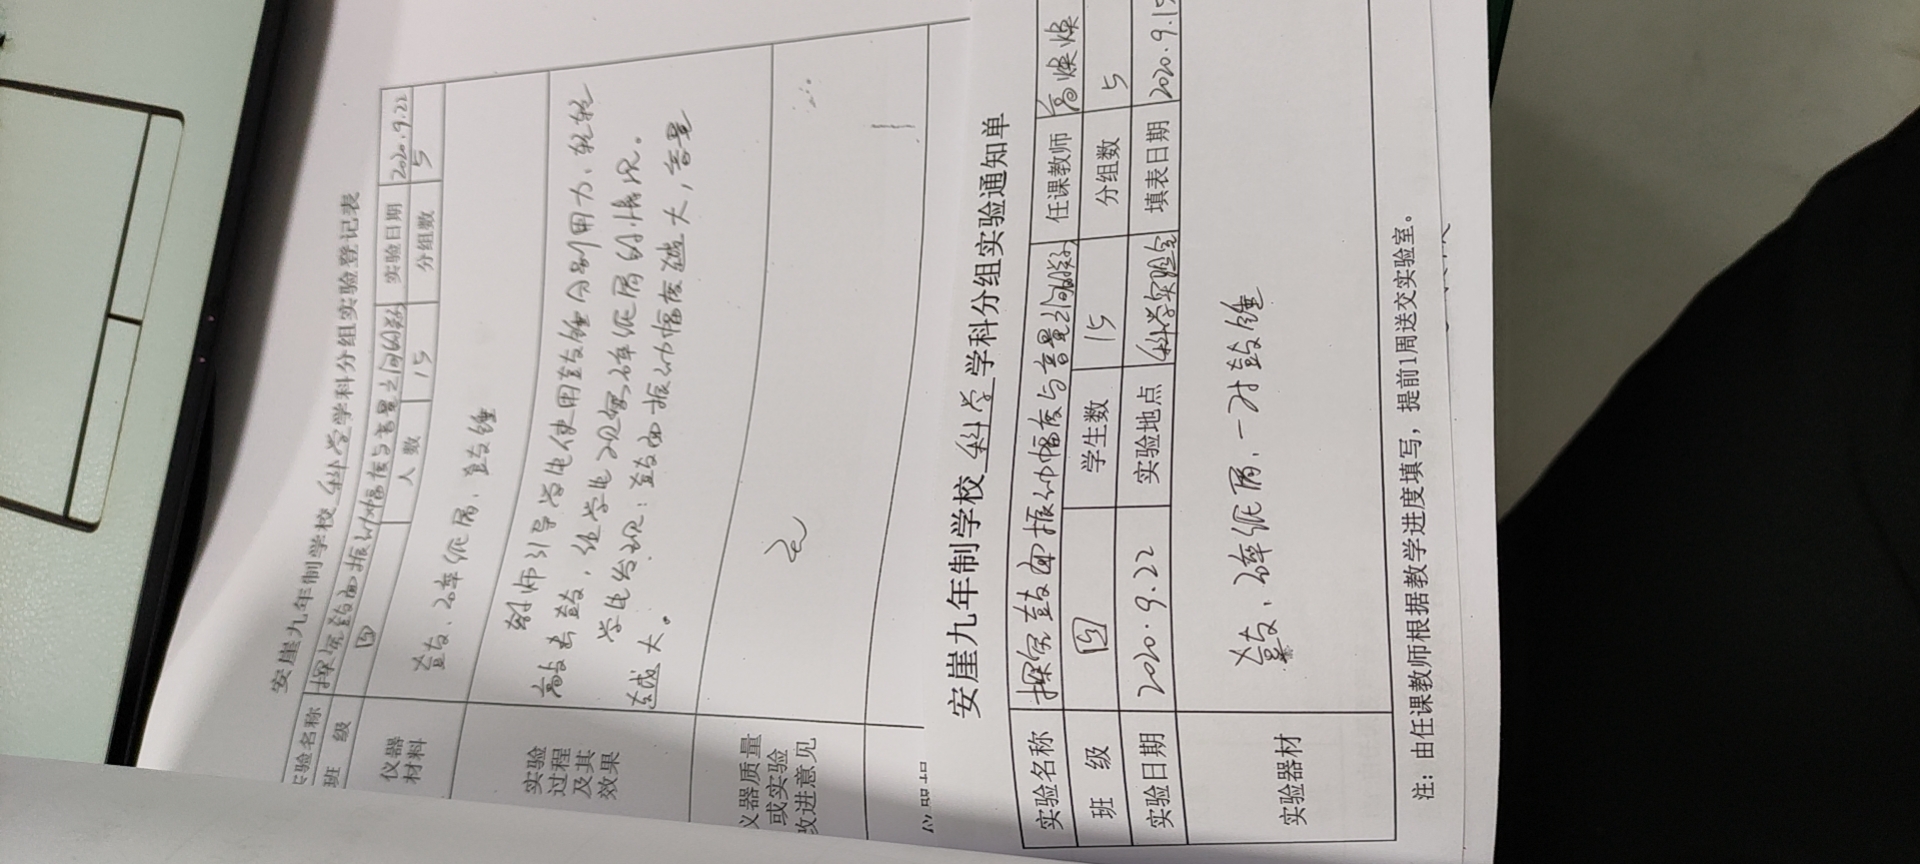 安崖九年制学校 科学 学科分组实验登记表
实验名称 探究鼓面振动幅度与音量之间的关系 实验日期 2020.9.22
班 级 四 人 数 15 分组数 5
仪器材料 鼓、碎纸屑、鼓锤
实验过程及其效果
教师引导学生使用鼓锤分别用力、轻轻
敲击鼓,让学生观察碎纸屑的情况。
学生发现:鼓面振动幅度越大,音量
越大。
仪器质量或实验改进意见 无
安崖九年制学校 科学 学科分组实验通知单
实验名称 探究鼓面振动幅度与音量之间的关系 任课教师 高焕焕
班 级 四 学生数 15 分组数 5
实验日期 2020.9.22 实验地点 科学实验室 填表日期 2020.9.15
实验器材 鼓、碎纸屑、一对鼓锤
注:由任课教师根据教学进度填写,提前1周送交实验室。